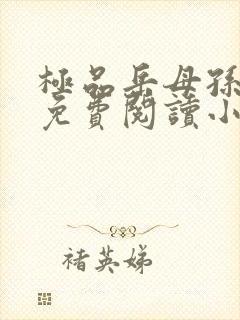 極品岳母孫
免費閱讀小
褚英娣